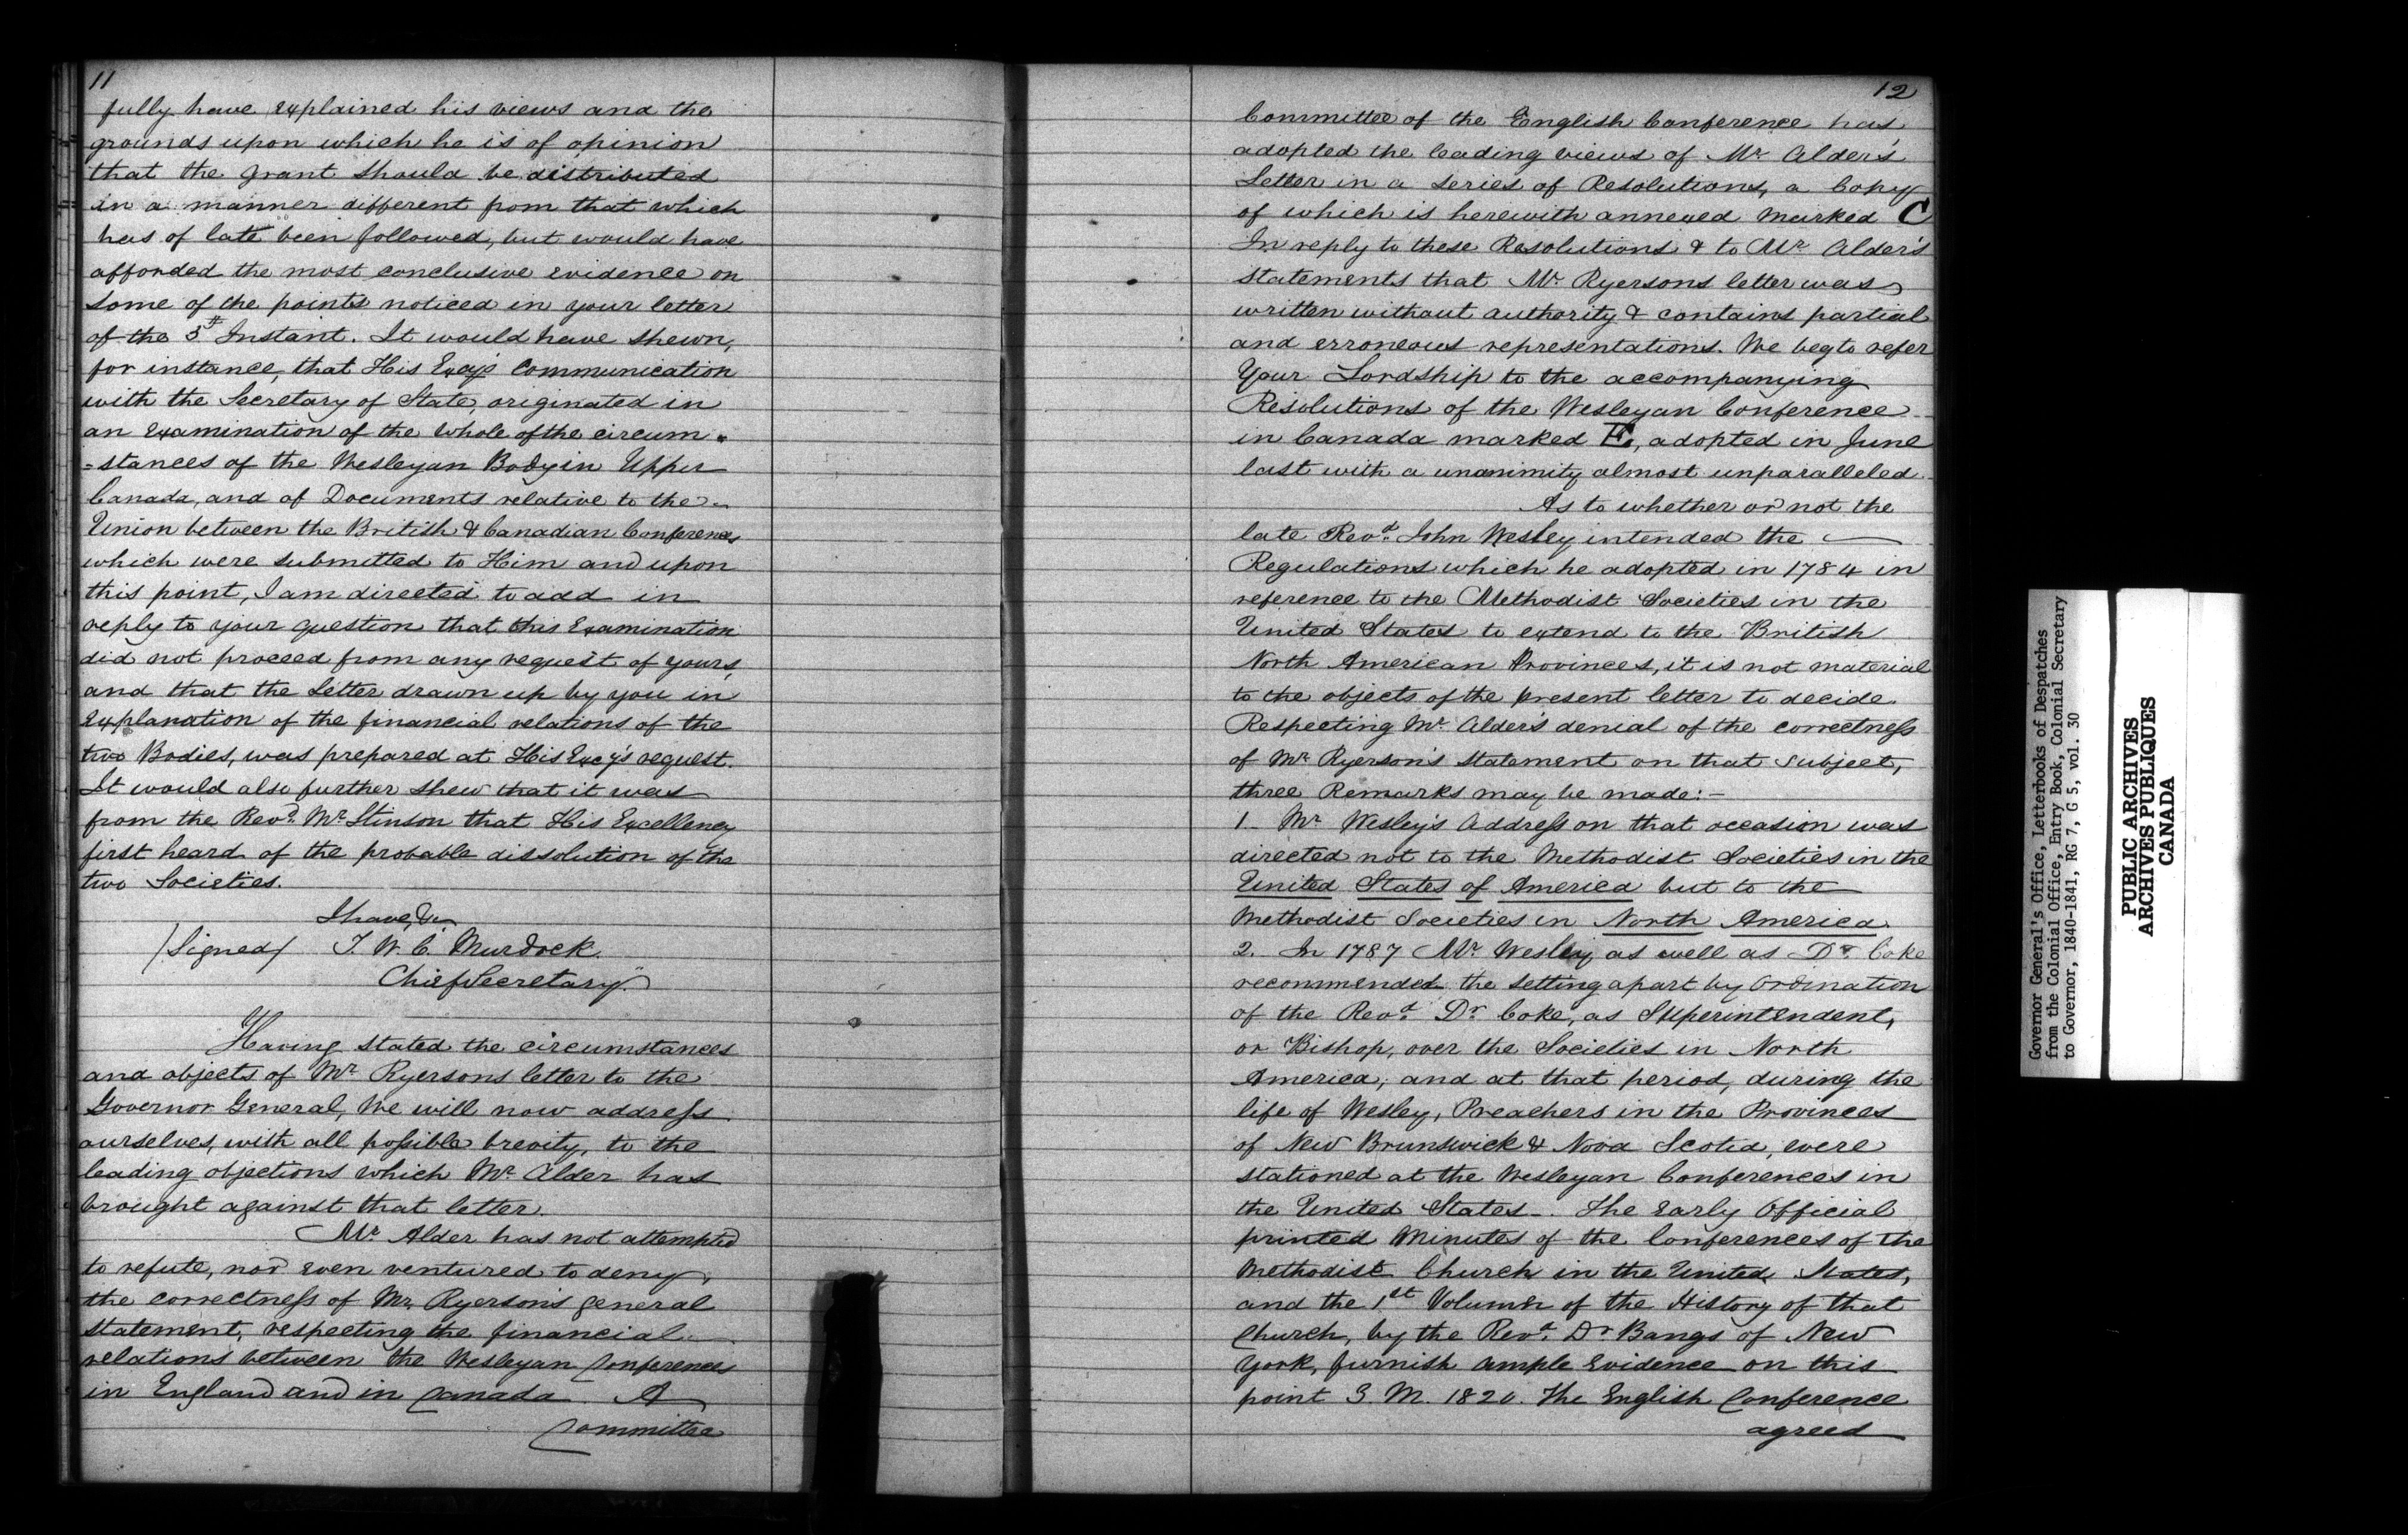 11
fully have explained his views and the
grounds upon which he is of opinion
that the grant should be distributed
in a manner different from that which
has of late been followed, but would have
afforded the most conclusive evidence on
some of the points noticed in your letter
of the 5th Instant. It would have shewn,
for instance, that His Excys Communication
with the Secretary of State, originated in
an examination of the whole of the circum-
=stances of the Wesleyan Body in Upper
Canada, and of Documents relative to the
Union between the British & Canadian Conferences
which were submitted to Him and upon
this point, I am directed to add in
reply to your question that this Examination
did not proceed from any request of yours,
and that the Letter drawn up by you in
Explanation of the financial relations of the
two Bodies, was prepared at His Excy's request.
It would also further shew that it was
from the Revd. Mr Stinson that His Excellency
first heard of the probable dissolution of the
two Societies.
I have, &c
/Signed/ T. W. C. Murdock.
Chief Secretary."
Having stated the circumstances
and objects of Mr Ryersons letter to the
Governor General, We will now address
ourselves, with all possible brevity, to the
leading objections which Mr Alder has
brought against that letter.
Mr Alder has not attempted
to refute, nor even ventured to deny,
the correctness of Mr. Ryerson's general
statement, respecting the financial
relations between the Wesleyan Conferences
in England and in Canada. A
Committee
12
Committee of the English Conference has
adopted the leading views of Mr Alder's
Letter in a series of Resolutions, a Copy
of which is herewith annexed marked C
In reply to these Resolutions & to Mr Alder's
statements that Mr Ryersons letter was
written without authority & contains partial
and erroneous representations. We beg to refer
Your Lordship to the accompanying
Resolutions of the Wesleyan Conference
in Canada marked E, adopted in June
last with a unanimity almost unparalleled.
As to whether or not the
late Revd. John Wesley intended the
Regulations which he adopted in 1784 in
reference to the Methodist Societies in the
United States to extend to the British
North American Provinces, it is not material
to the objects of the present letter to decide.
Respecting Mr Alder's denial of the correctness
of Mr Ryerson's statement on that subject,
three Remarks may be made:-
1. Mr Wesley's Address on that occasion was
directed not to the Methodist Societies in the
United States of America but to the
Methodist Societies in North America.
2. In 1787 Mr Wesley as well as Dr Coke
recommended the setting apart by Ordination
of the Revd. Dr Coke, as Superintendent,
or Bishop, over the Societies in North
America; and at that period, during the
life of Wesley, Preachers in the Provinces
of New Brunswick & Nova Scotia, were
stationed at the Wesleyan Conferences in
the United States. The early Official
printed Minutes of the Conferences of the
Methodist Church in the United States,
and the 1st Volume of the History of that
Church, by the Revd. Dr Bangs of New
York, furnish ample evidence on this
point 3. In 1820. The English Conference
agreed
Governor General's Office, Letterbooks of Despatches
from the Colonial Office, Entry Book, Colonial Secretary
to Governor, 1840-1841, RG 7, G 5, vol. 30
PUBLIC ARCHIVES
ARCHIVES PUBLIQUES
CANADA